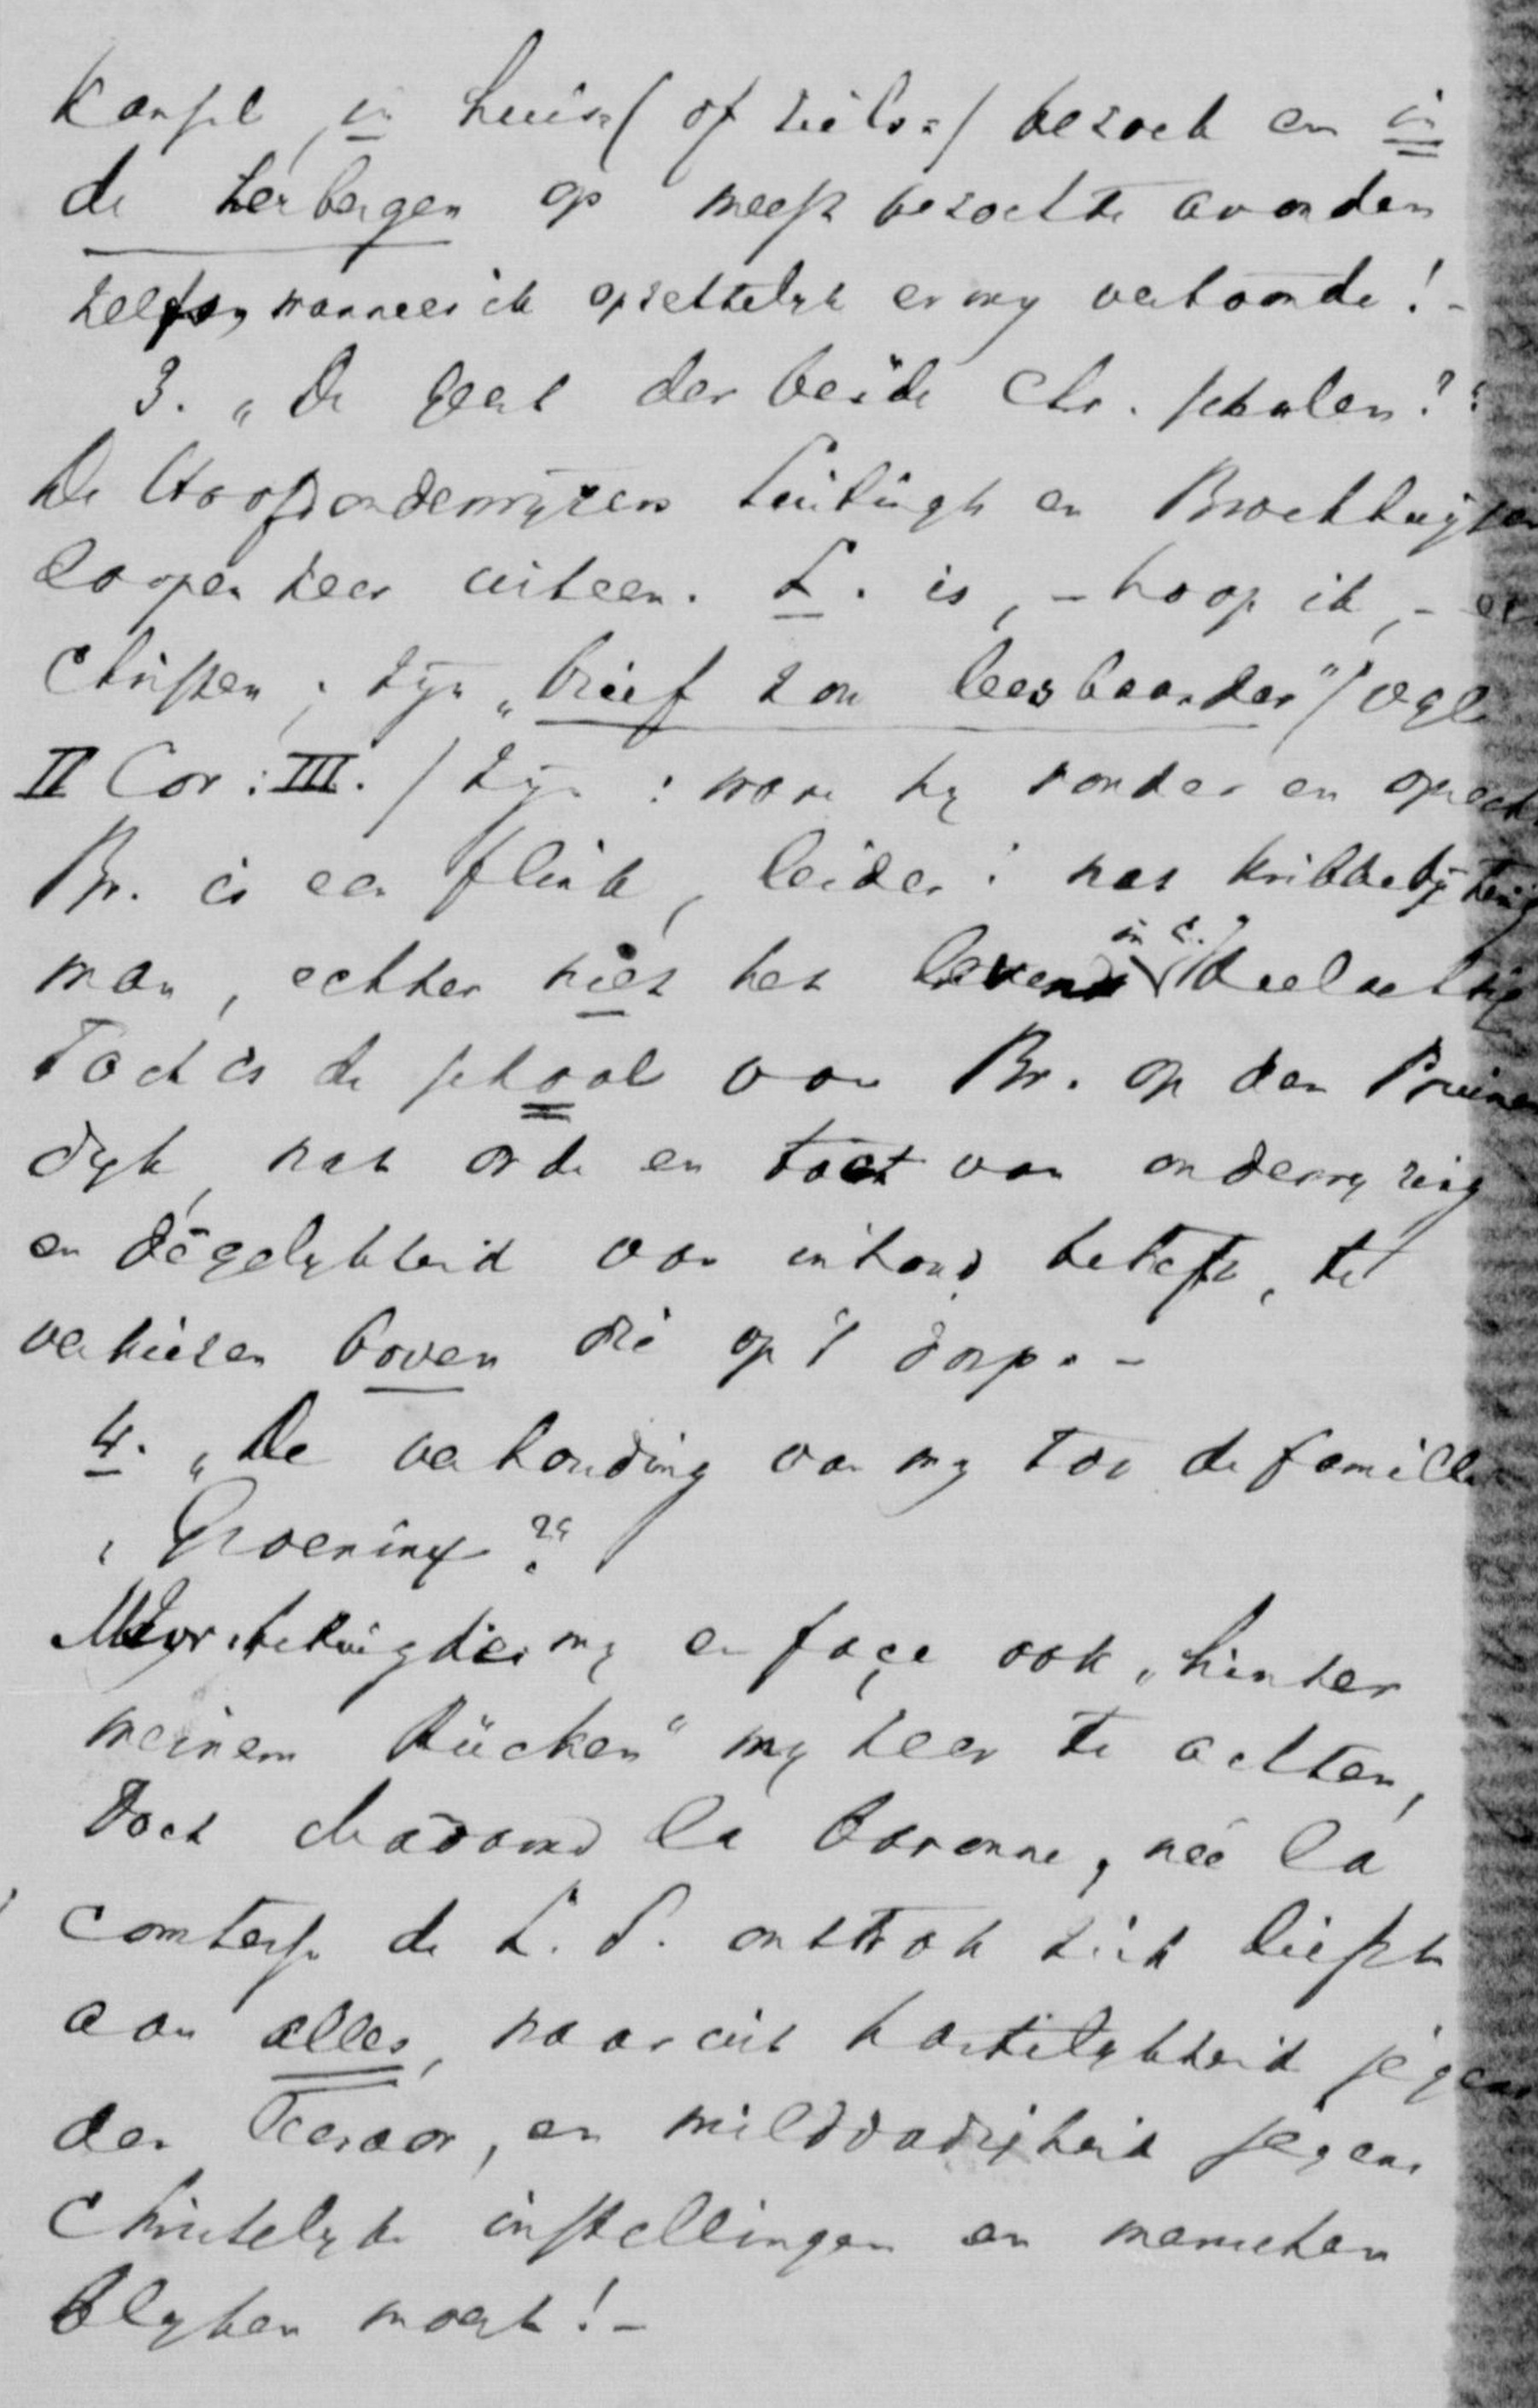 Kansel, in huis=(of ziels=) bezoek en in
de herbergen op meest bezochte avonden
zelfs, wanneer ik opzettelyk er my vertoonde! -
3. „De geest der beide Chr. scholen?"
De Hoofdonderwyzers en
loopen zeer uiteen. L. is, - hoop ik, - een
Christen; zyn „brief zou leesbaarder" (vgl.
II Cor: III.) zyn: ware hy ronder en oprecht
Br. is een flink, leider: wat kribbebyterig
man, echter niet het leven in C. deelachtig
Toch is de school van Br. op den
dyk, wat orde en tact van onderwyzing
en degelykheid van inhoud betreft, te
verkiezen boven die op 't dorp. -
4. „De verhouding van my tot de familie
„Groeninx?"
Mhr. betuigde my en façe ook „hinter
meinem Rücken" my zeer te achten,
doch Madame la baronne, née la
comtesse de L. S. onttrok zich liefst
aan alles, waaruit hartelykheid jegens
den Leeraar, en milddadigheid jegens
Christelyke instellingen en menschen
blyken moest! -